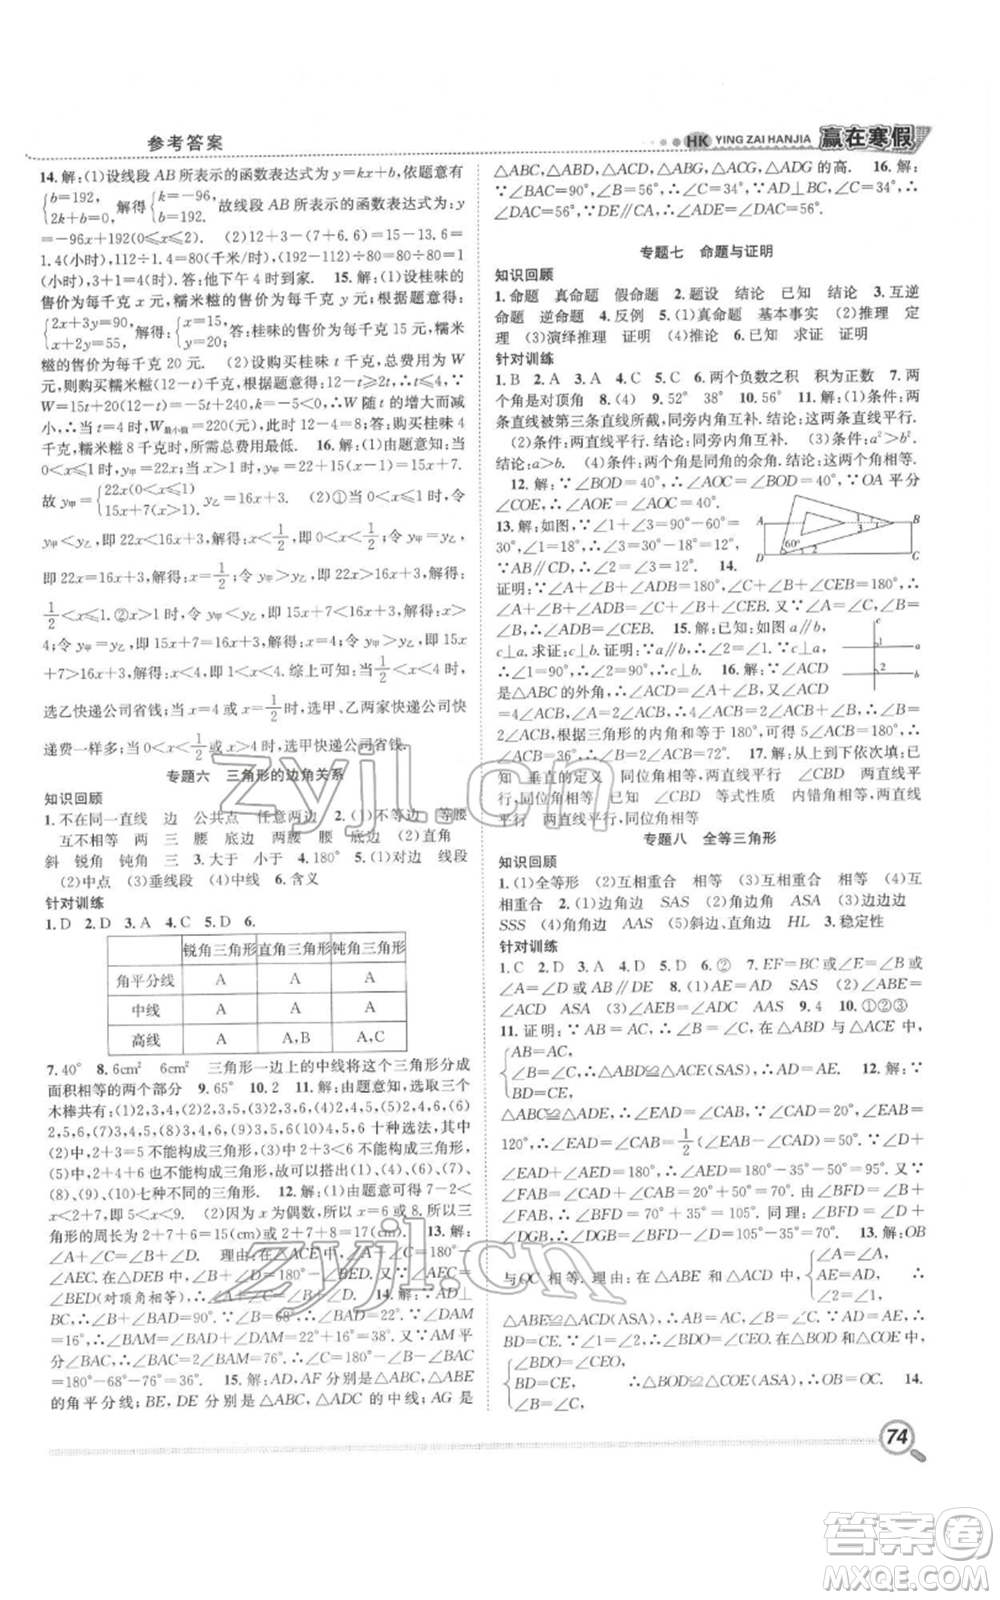 参考答案
HK YING ZAI HANJIA 赢在寒假
14.解:(1)设线段 AB 所表示的函数表达式为 y=kx+b,依题意有
{b=192, 2k+b=0, 解得{k=-96, b=192. 故线段 AB 所表示的函数表达式为:y
=-96x+192(0≤x≤2). (2)12+3-(7+6.6)=15-13.6=
1.4(小时),112÷1.4=80(千米/时),(192-112)÷80=80÷80=1
(小时),3+1=4(时).答:他下午 4 时到家. 15.解:(1)设桂味的
售价为每千克 x 元,糯米糍的售价为每千克 y 元;根据题意得:
{2x+3y=90, x+2y=55, 解得:{x=15, y=20; 答:桂味的售价为每千克 15 元,糯米
糍的售价为每千克 20 元. (2)设购买桂味 t 千克,总费用为 W
元,则购买糯米糍(12-t)千克,根据题意得:12-t≥2t,∴t≤4,∵W
=15t+20(12-t)=-5t+240,k=-5<0,∴W 随 t 的增大而减
小,∴当 t=4 时,W最小值=220(元),此时 12-4=8;答:购买桂味 4
千克,糯米糍 8 千克时,所需总费用最低. 16.解:(1)由题意知:当
0<x≤1 时,y甲=22x;当 1<x 时,y甲=22+15(x-1)=15x+7.
故 y甲={22x(0<x≤1) 15x+7(x>1), y乙=16x+3. (2)①当 0<x≤1 时,令
y甲<y乙,即 22x<16x+3,解得:0<x<1/2;令 y甲=y乙,
即 22x=16x+3,解得:x=1/2;令 y甲>y乙,即 22x>16x+3,解得:
1/2<x≤1.②x>1 时,令 y甲<y乙,即 15x+7<16x+3,解得:x>
4;令 y甲=y乙,即 15x+7=16x+3,解得:x=4;令 y甲>y乙,即
15x+7>16x+3,解得:1<x<4.综上可知:当1/2<x<4 时,
选乙快递公司省钱;当 x=4 或 x=1/2时,选甲、乙两家快递公司快
递费一样多;当 0<x<1/2或 x>4 时,选甲快递公司省钱.
专题六 三角形的边角关系
知识回顾
1.不在同一直线 边 公共点 任意两边 2.(1)不等边 等腰
互不相等 两 三 腰 底边 两边 底边 (2)直角
斜 锐角 钝角 三 3.大于 小于 4.180° 5.(1)对边 线段
(2)中点 (3)垂线段 (4)中线 6.含义
针对训练
1.D 2.D 3.A 4.C 5.D 6.
锐角三角形 直角三角形 钝角三角形
角平分线 A A A
中线 A A A
高线 A A,C A,B
7.40° 8.6cm² 6cm² 三角形一边上的中线将这个三角形分成
面积相等的两个部分 9.65° 10.2 11.解:由题意知,选取三个
木棒共有:(1)2,3,4,(2)2,3,5,(3)2,3,6,(4)2,4,5,(5)2,4,6,(6)
2,5,6,(7)3,4,5,(8)3,4,6,(9)3,5,6,(10)4,5,6 十种选法,其中
(2)中 2+3=5 不能构成三角形,(3)中 2+3<6 不能构成三角形,
(5)中 2+4=6 不能构成三角形,故有(1)、(4)、(6)、(7)、(8)、
(9)、(10)七种不同的三角形. 12.解:(1)由题意可得 7-2<x
<7+2,即 5<x<9. (2)因为 x 为偶数,所以 x=6 或 8.所以三角
形的周长为 2+7+6=15(cm)或 2+7+8=17(cm). 13.解:
∠A+∠C=∠B+∠D. 理由:在△AEC 中,∠A+∠C=180°-
∠AEC.在△DEB 中,∠B+∠D=180°-∠BED. ∵∠AEC=
∠BED(对顶角相等),∴∠A+∠C=∠B+∠D. 14.解:∵AD⊥
BC,∴∠BAD=90°-∠B=90°-∠B=90°-68°=22°,∵∠DAM
=16°,∴∠BAM=∠BAD+∠DAM=22°+16°=38°.又∵AM 平
分∠BAC,∴∠BAC=2∠BAM=76°.∴∠C=180°-∠B-∠BAC=
180°-68°-76°=36°. 15.解:AD,AF 分别是△ABC,△ABE
的角平分线;BE,DE 分别是△ABC,△ADC 的中线;AG 是
△ABC,△ABD,△ACD,△ABG,△ACG,△ADG 的高. 16.解:
∵∠BAC=90°,∠B=56°,∴∠C=34°,∵AD⊥BC,∠C=34°,∴
∠DAC=56°,∵DE∥CA,∴∠ADE=∠DAC=56°.
专题七 命题与证明
知识回顾
1.命题 真命题 假命题 2.题设 结论 已知 结论 3.互逆
命题 逆命题 4.反例 5.(1)真命题 基本事实 (2)推理 定
理 (3)演绎推理 证明 6.已知 求证 证明
针对训练
1.B 2.A 3.A 4.C 5.C 6.两个负数之积 积为正数 7.两
个角是对顶角 8.(4) 9.52° 38° 10.56° 11.(1)条件:两
条直线被第三条直线所截,同旁内角互补.结论:这两条直线平行.
(2)条件:两直线平行.结论:同旁内角互补. (3)条件:a²>b².
结论:a>b. (4)条件:两个角是同角的余角.结论:这两个角相等.
12.解:∵∠BOD=40°,∴∠AOC=∠BOD=40°.∵OA 平分
∠COE,∴∠AOE=∠AOC=40°.
13.解:如图,∵∠1+∠3=90°-60°=
30°,∠1=18°,∴∠3=30°-18°=12°,
∵AB∥CD,∴∠2=∠3=12°. 14.
A B D C 60° 1 2 3
证明:∵∠A+∠B+∠ADB=180°,∠A+∠B+∠CEB=180°,∴
∠A+∠B+∠ADB=180°,∠C+∠B+∠CEB=180°,∴
∠ADB=∠CEB. 15.解:已知:如图 a∥b,
c⊥a.求证:c⊥b.证明:∵a∥b,∴∠1=∠2.∵c⊥a,
∴∠1=90°,∴∠2=90°,∴c⊥b. 16.解:∵∠ACD
c a b 1 2
是△ABC 的外角,∴∠A+∠ABC=∠ACD,∵∠ACD
=4∠ACB,∴∠A+∠ACB=4∠ACB=2∠ACB+
∠ACB,根据三角形的内角和等于 180°,可得 5∠ACB=180°,
∴∠ACB=36°,∴∠ABC=2∠ACB=72°. 17.解:从上到下依次填:已
知 垂直的定义 两直线平行,同位角相等 两直线平
行,同位角相等 ∠CBD ∠CBD 等式性质 内错角相等,
两直线平行 ∠CBD 两直线平行,同位角相等
专题八 全等三角形
知识回顾
1.(1)全等形 (2)互相重合 相等 (3)互相重合 互相重合
相等 相等 2.(1)边角边 SAS (2)角边角 ASA (3)边边边
SSS (4)角角边 AAS (5)斜边、直角边 HL 3.稳定性
针对训练
1.C 2.D 3.B 4.C 5.D 6.② 7.EF=BC 或∠A=∠D 或∠C
=∠A=∠D 或 AB∥DE 8.(1)AE=AD SAS (2)∠ABE=
∠ACD ASA (3)∠AEB=∠ADC AAS 9.4 10.①②③
11.证明:∵∠B=∠C,∴AB=AC,∴在△ABD 与△ACE 中,
{AB=AC, ∠B=∠C, BD=CE, ∴△ABD≌△ACE(SAS),∴AD=AE. 12.解:∵
△ABC≌△ADE,∴∠EAD=∠CAB,∵∠CAD=10°,∠EAB=
120°,∴∠EAD=∠CAB=1/2(∠EAB-∠CAD)=55°,∵∠D
+∠EAD+∠AED=180°,∴∠AED=180°-35°-50°=95°.又∵
∠AFB=∠CAD+∠D,∴∠BFD=∠CAB+∠CAD+∠B,
∠BFD=∠BFD=55°+10°+35°=90°. 同理:∠BFD=∠D
+∠DGB,∴∠DGB=∠BFD-∠D=90°-35°=55°. 13.解:OB
与 OC 相等. 理由:在△ABE 和△ACD 中,{∠A=∠A, AE=AD, ∠1=∠2,
∴△ABE≌△ACD(ASA),∴AB=AC,∵AD=AE,∴
BD=CE.∵∠1=∠2,∴∠BDO=∠CEO.在△BOD 和△COE 中,
{∠BDO=∠CEO, BD=CE, ∠B=∠C, ∴△BOD≌△COE(ASA),∴OB=OC. 14.
74
zyjl.cn
zyjl.cn
答案卷
MXQE.COM